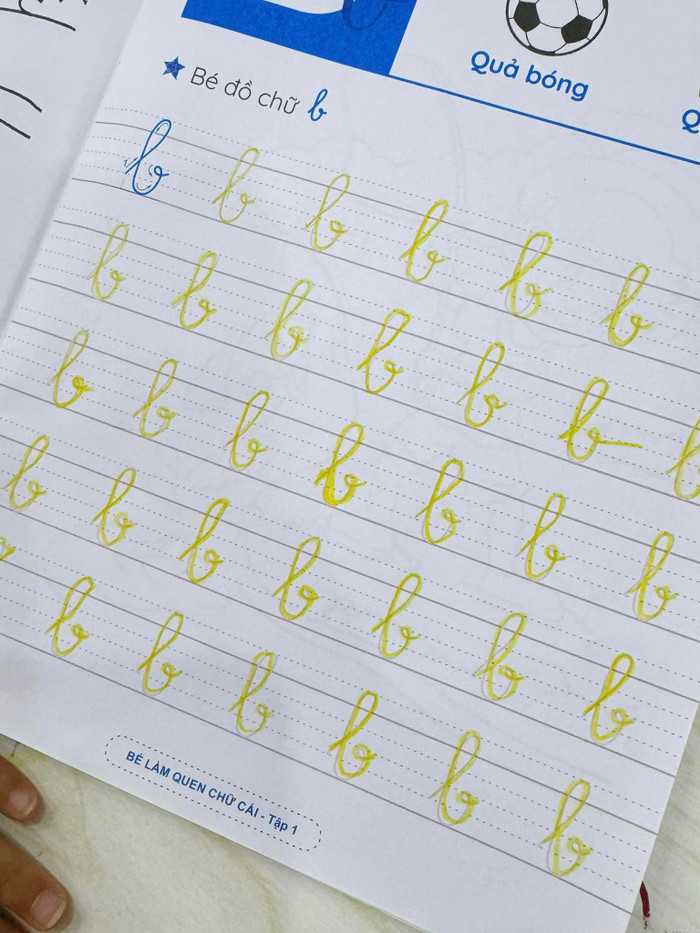 Quả bóng
Bé đồ chữ b
b b b b b b
b b b b b b b
b b b b b b b
b b b b b b b
b b b b b b
BÉ LÀM QUEN CHỮ CÁI - Tập 1